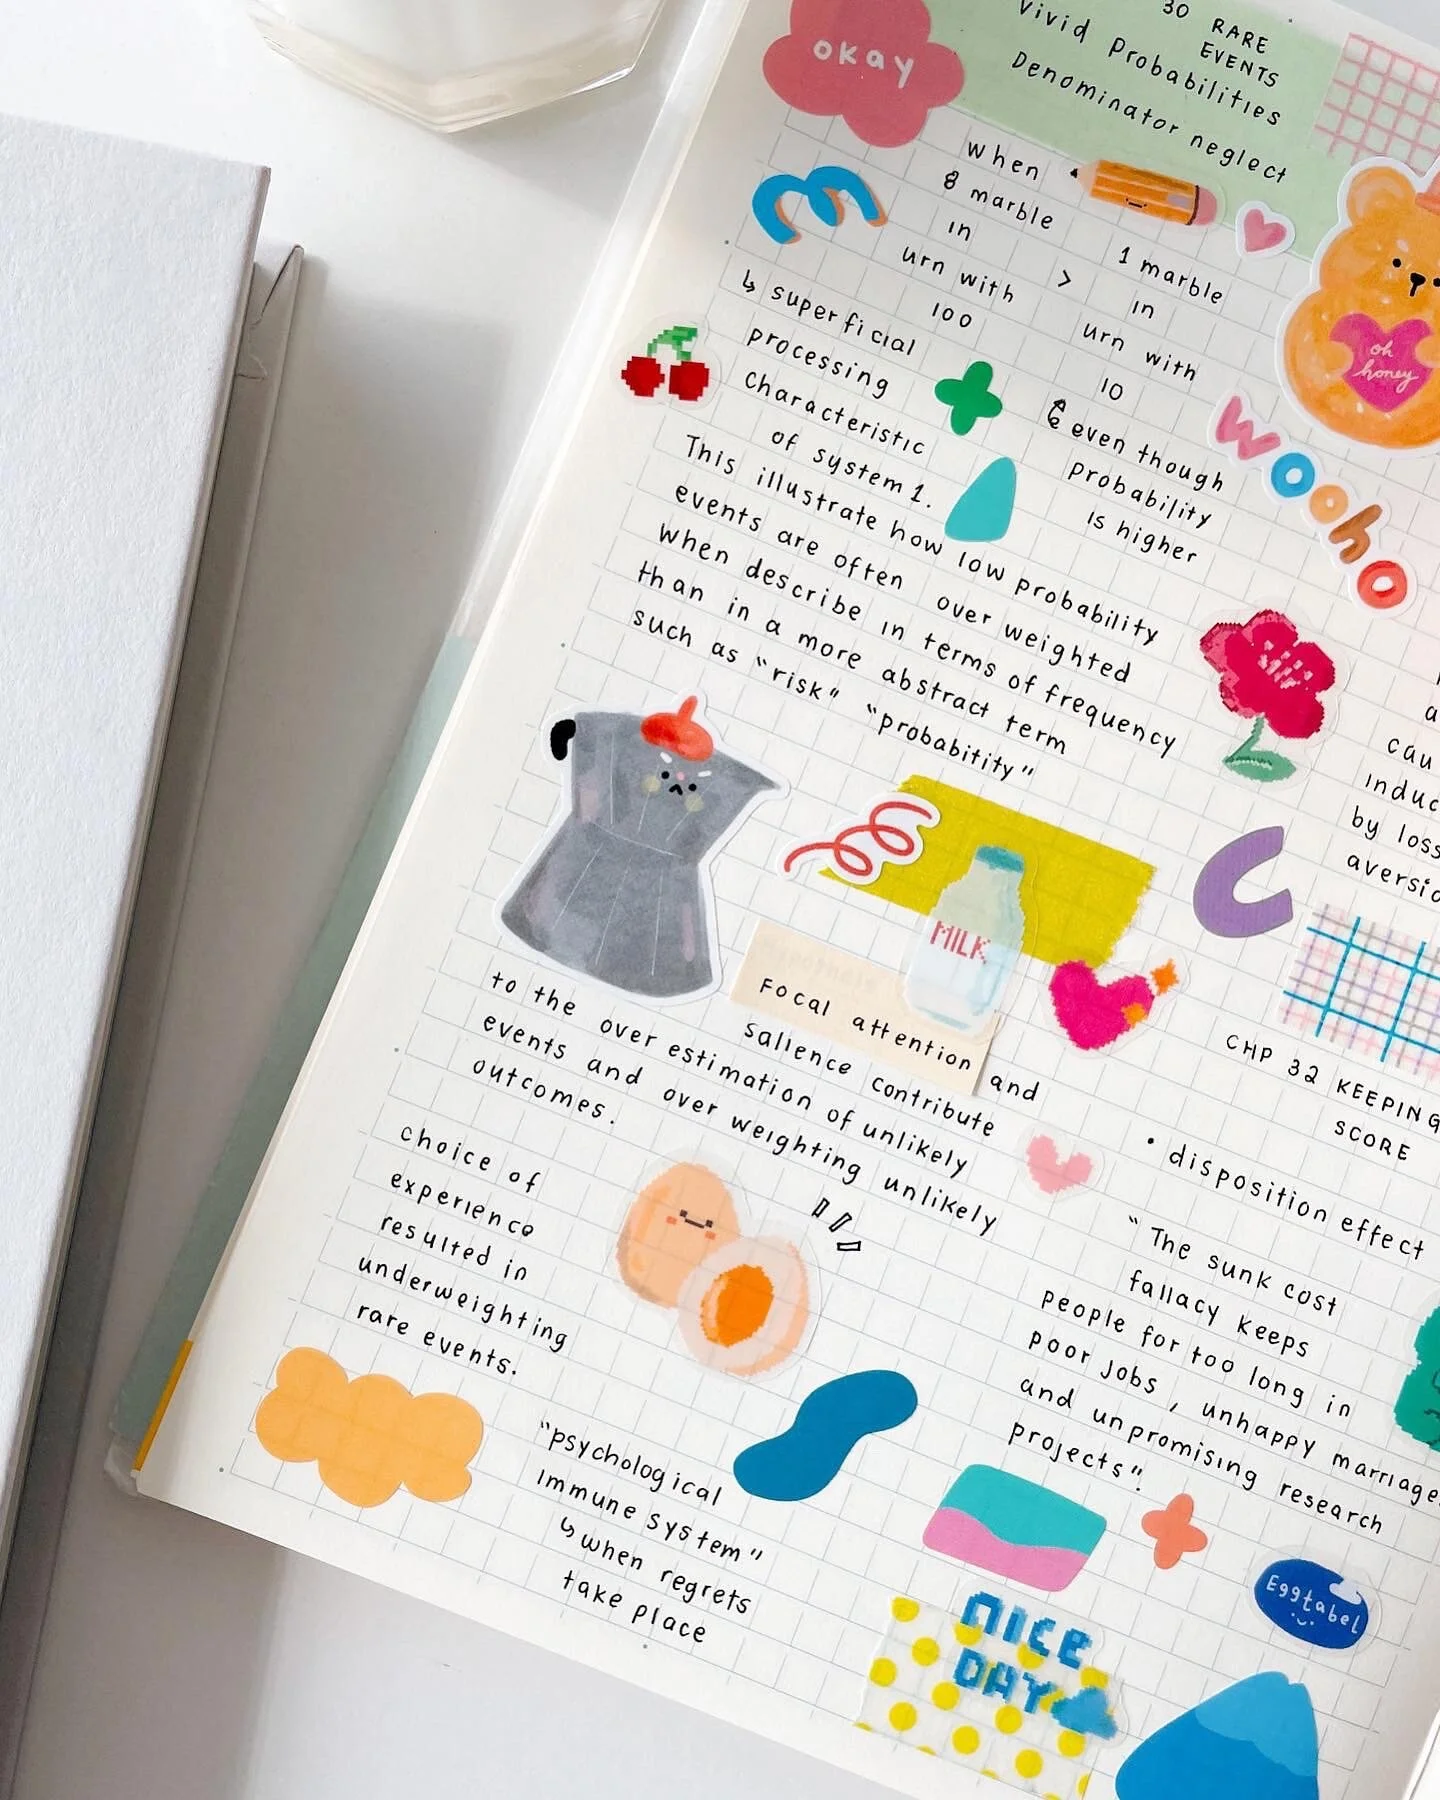 okay
30 RARE
EVENTS
Vivid Probabilities
Denominator neglect
when
8 marble
in
urn with
100
>
1 marble
in
urn with
10
↳ superficial
processing
characteristic
of system 1.
even though
probability
is higher
oh
honey
wooho
This illustrate how low probability
events are often over weighted
when describe in terms of frequency
than in a more abstract term
such as "risk" "probabitity"
MILK
Focal attention and
salience contribute
to the over estimation of unlikely
events and over weighting unlikely
outcomes.
choice of
experience
resulted in
underweighting
rare events.
"psychological
immune system"
↳ when regrets
take place
cau
induc
by loss
aversio
CHP 32 KEEPING
SCORE
• disposition effect
"The sunk cost
fallacy keeps
people for too long in
poor jobs, unhappy marriage
and unpromising research
projects".
Eggtabel
NICE
DAY